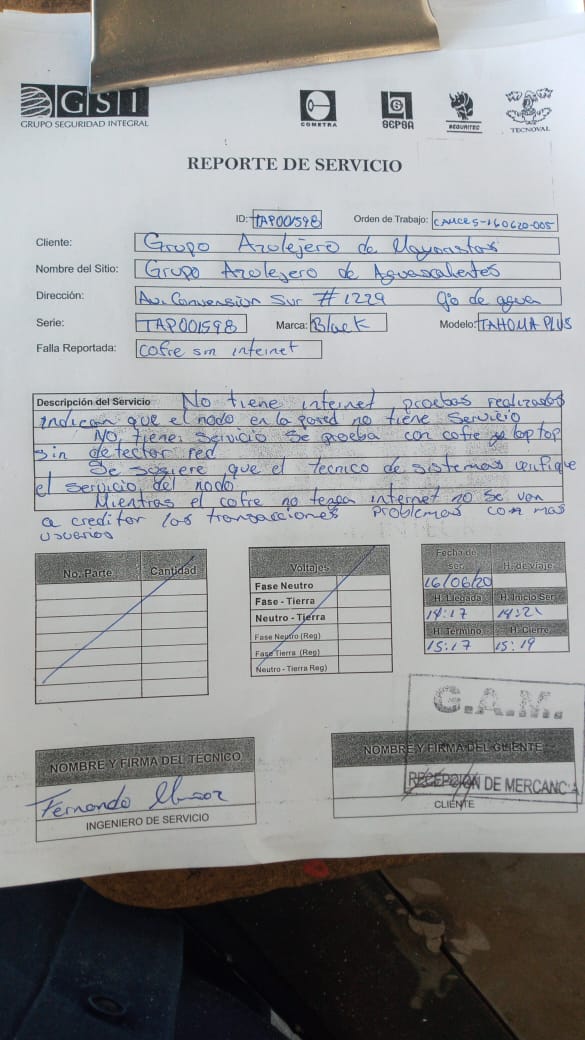 GSI
GRUPO SEGURIDAD INTEGRAL
COMETRA
SEPSA
SEGURITEC
TECNOVAL
REPORTE DE SERVICIO
ID: TAP001598 Orden de Trabajo: CAUCES-160620-005
Cliente: Grupo Azulejero de
Nombre del Sitio: Grupo Azulejero de Aguascalientes
Dirección: Av. Convension Sur #1229 Ojo de agua
Serie: TAP001598 Marca: Black Modelo: TAHOMA PLUS
Falla Reportada: cofre sin internet
Descripción del Servicio No tiene internet pruebas realizadas
indican que el nodo en la pared no tiene Servicio
NO tiene servicio Se prueba con cofre y laptop
sin detectar red
Se sugiere que el tecnico de sistemas verifique
el servicio del nodo
Mientras el cofre no tenga internet no se van
a creditar las transacciones problemas con mas
usuarios
No. Parte Cantidad
Voltajes
Fase Neutro
Fase - Tierra
Neutro - Tierra
Fase Neutro (Reg)
Fase Tierra (Reg)
Neutro - Tierra Reg)
Fecha de ser. H. de viaje
16/06/20
H. Llegada H. Inicio Ser
14:17 14:21
H. Termino H. Cierre
15:17 15:19
G.A.M.
RECEPCION DE MERCANCIA
NOMBRE Y FIRMA DEL TÉCNICO
Fernando
INGENIERO DE SERVICIO
NOMBRE Y FIRMA DEL CLIENTE
CLIENTE